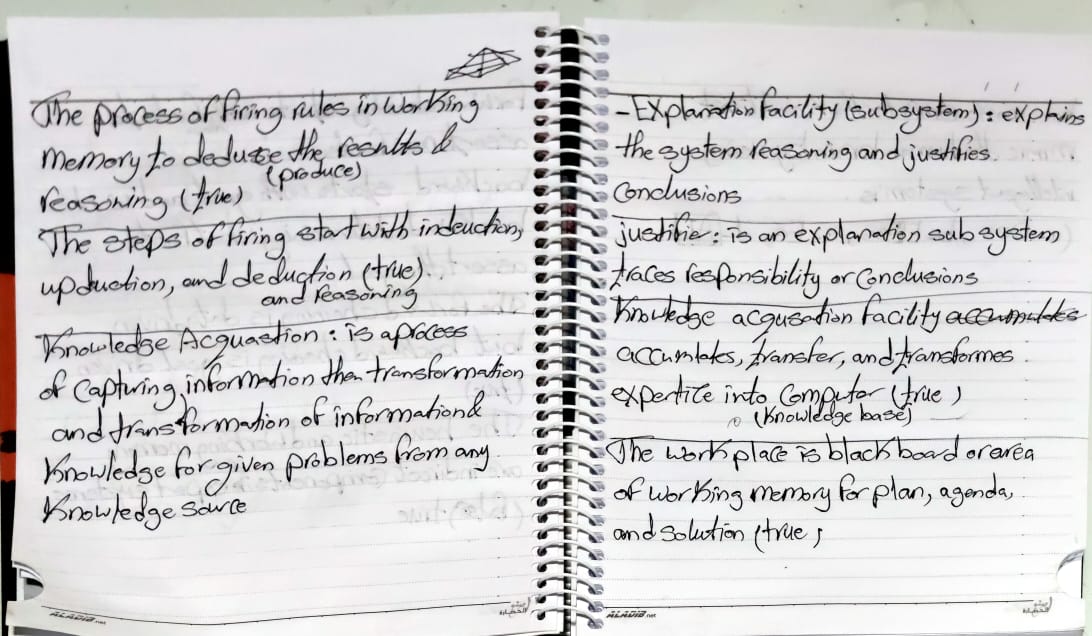 The process of firing rules in working
memory to deduse the results &
(produce)
reasoning (true)
The steps of firing start with indeuction,
upduction, and deduction (true).
and reasoning
Knowledge Acquastion : is a process
of capturing, information than transformation
and transformation of information &
Knowledge for given problems from any
Knowledge source
ALADIB.net
- Explanation Facility (subsystem) : explains
the system reasoning and justifies
Conclusions
justifie : is an explanation sub system
traces responsibility or Conclusions
Knowledge acqusation facility accumulates
accumlates, transfer, and transformes
expertice into Computer (true)
(Knowledge base)
The work place is black board or area
of working memory for plan, agenda,
and solution (true)
ALADIB.net